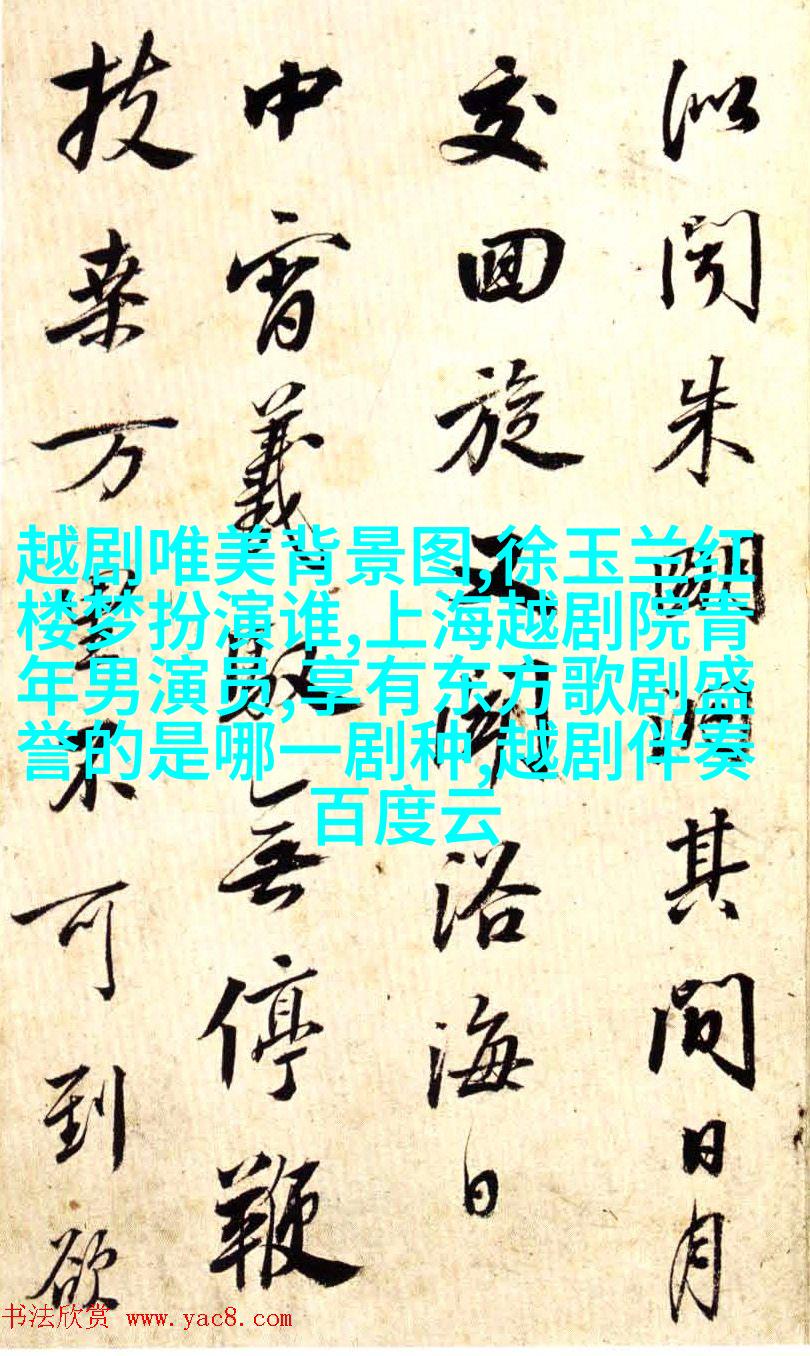 似聞朱其間日月
交回旋又聞浴海日
中宵羲馭無停鞭
扶桑万里不可到欲
越剧唯美背景图,徐玉兰红
楼梦扮演谁,上海越剧院青
年男演员,享有东方歌剧盛
誉的是哪一剧种,越剧伴奏
百度云
书法欣赏 www.yac8.com